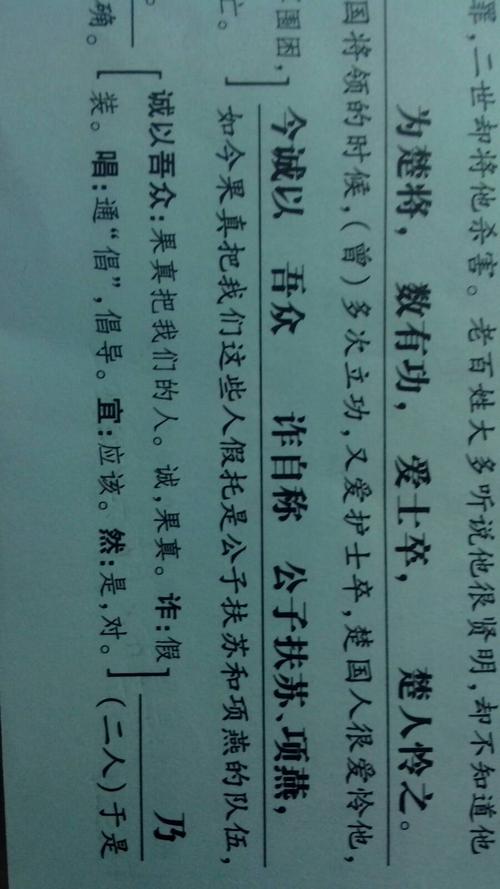 罪,二世却将他杀害。老百姓大多听说他很贤明,却不知道他
为楚将, 数有功, 爱士卒, 楚人怜之。
国将领的时候,(曾)多次立功,又爱护士卒,楚国人很爱怜他,
围困,] 今诚以 吾众 诈自称 公子扶苏、项燕,
亡。] 如今果真把我们这些人假托是公子扶苏和项燕的队伍,
。 [诚以吾众:果真把我们的人。诚,果真。诈:假] 乃
确。 [装。唱:通“倡”,倡导。宜:应该。然:是,对。] (二人)于是